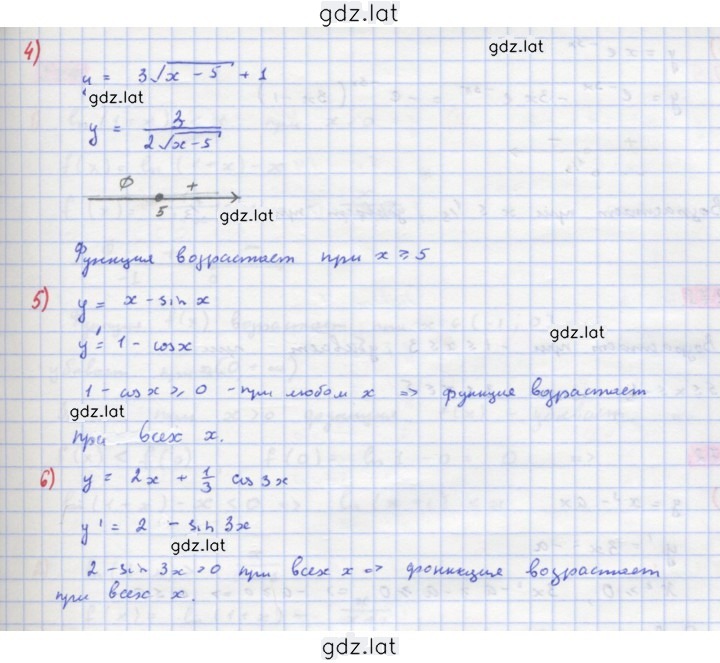 gdz.lat
4)
gdz.lat
y = 3√(x - 5) + 1
gdz.lat
y' = 3 / (2√(x-5))
∅ +
5
gdz.lat
Функция возрастает при x ≥ 5
5) y = x - sin x
gdz.lat
y' = 1 - cosx
1 - cosx ≥ 0 - при любом x => функция возрастает
gdz.lat
при всех x.
6) y = 2x + 1/3 cos3x
y' = 2 - sin3x
gdz.lat
2 - sin 3x > 0 при всех x => фонкция возрастает
при всех x.
gdz.lat